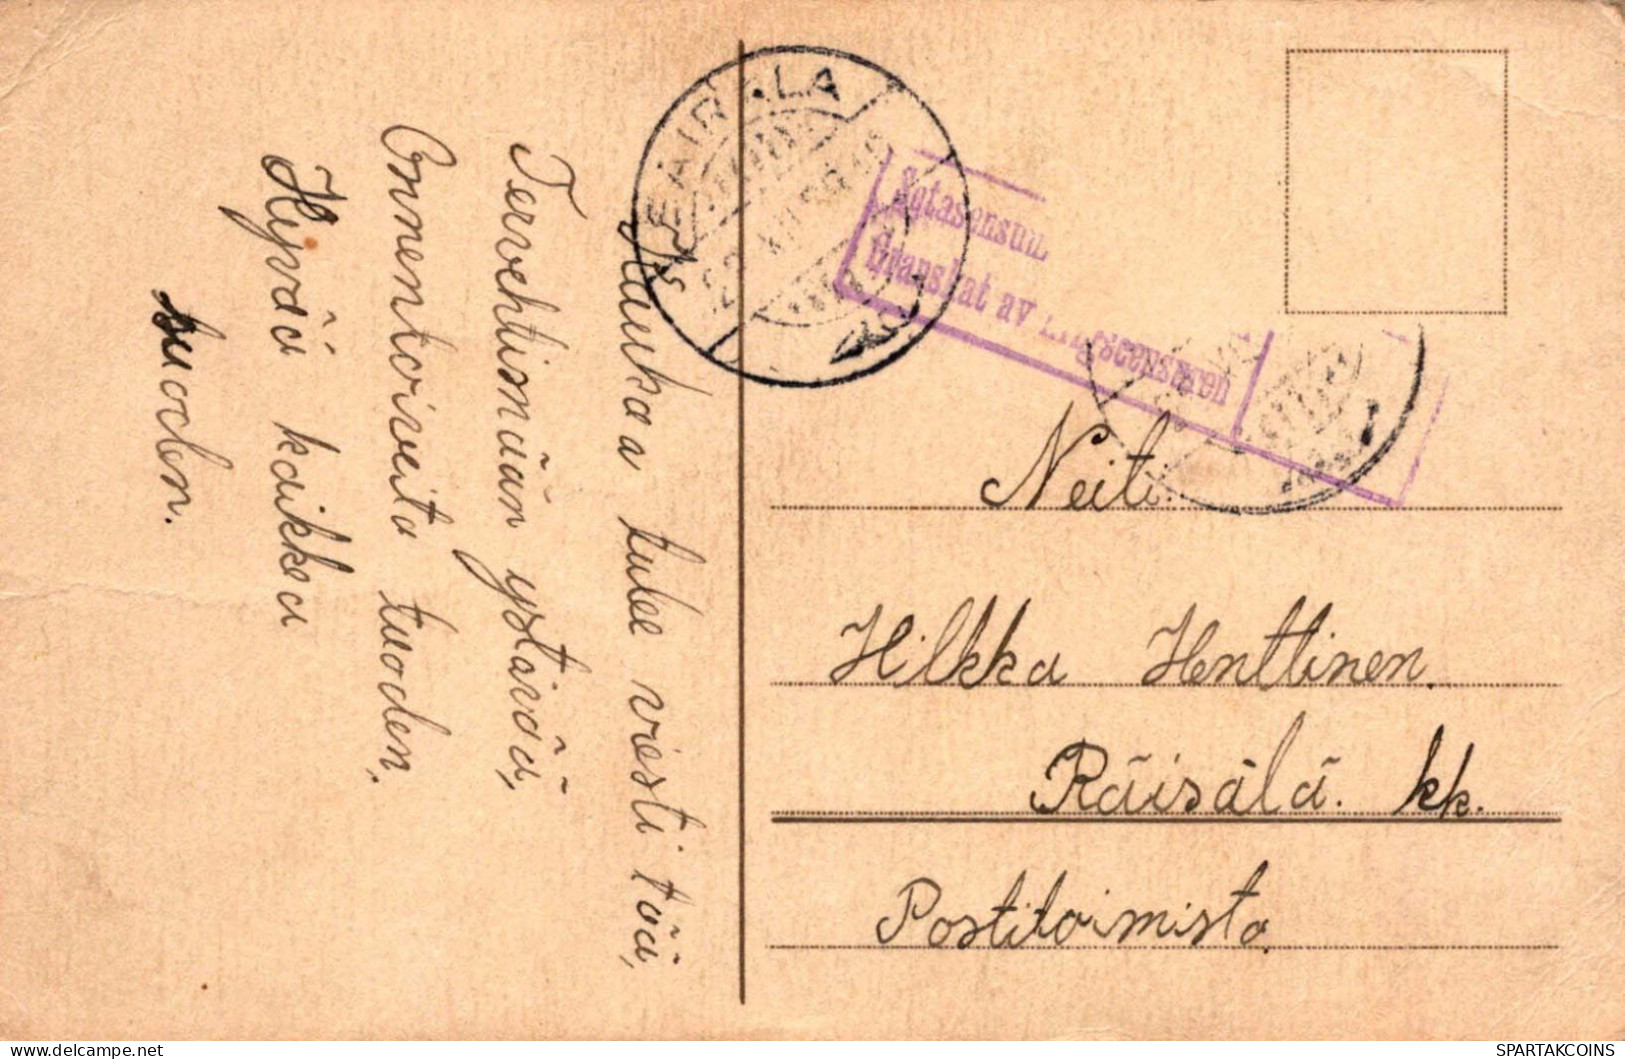 Haukka tulee viesti tää,
Tervehtimään ystävää,
Onnentoiveita tuoden,
Hyvää kaikkea
suoden.
Sotasensuu
Granskat av censuren
Neiti
Hilkka Henttinen.
Räisälä. kk.
Postitoimisto
SPARTAKCOINS